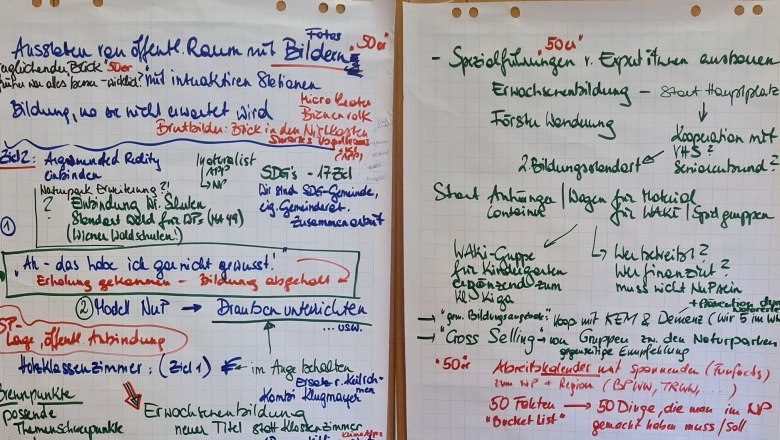 Ausstatten von öffentl. Raum mit Bildern
Fotos
"50er"
"50er"
früher war alles besser - wirklich?
mit interaktiven Stationen
Bildung, wo sie nicht erwartet wird
Micro Theater
Bienenvolk
Brutbilder: Blick in den Nistkasten
(APP)
Ziel 2:
Augmented Reality
einbinden
inaturalist
APP
→ NP
SDG's - 17 Ziel
Wir sind SDG-Gemeinde,
eig. Gemeinderat.
Zusammenarbeit
Naturpark Erweiterung?!
?
Einbindung Wr. Schulen
Standort Wald für
(MA 49)
(Wiener Waldschulen!)
①
"Ah - das habe ich gar nicht gewusst!"
Erholung gekommen - Bildung abgeholt
② Modell NuP → Draußen unterrichten
... usw.
Lage, öffentl. Anbindung
Holzklassenzimmer: (Ziel 1)
im Auge behalten
Kombi Klugmayer
Brennpunkte
passende
Themenschwerpunkte
Erwachsenenbildung
neuer Titel statt Klassenzimmer
"50er"
- Spezialführungen v. ExpertInnen ausbauen
Erwachsenenbildung - Start Hauptplatz
Förster Wanderung
Kooperation mit
VHS?
Seniorenbund?
2. Bildungsstandort
Start Anhänger | Wagen für Material
Container
für WAKi | Spielgruppen
WAKi-Gruppe
für Kindergarten
ergänzend zum
Kiga
Wer betreibt?
Wer finanziert?
muss nicht NuP sein
→ "gem. Bildungsangebote": Koop mit KEM & Demenz (Wir 5 im
→ "Cross Selling" → von Gruppen zw. den Naturparken
gegenseitige Empfehlung
"50er"
Abreißkalender mit spannenden (Funfacts)
zum NP + Region (BPWW, TRWN, ...)
50 Fakten → 50 Dinge, die man im NP
"Bucket List"
gemacht haben muss/soll